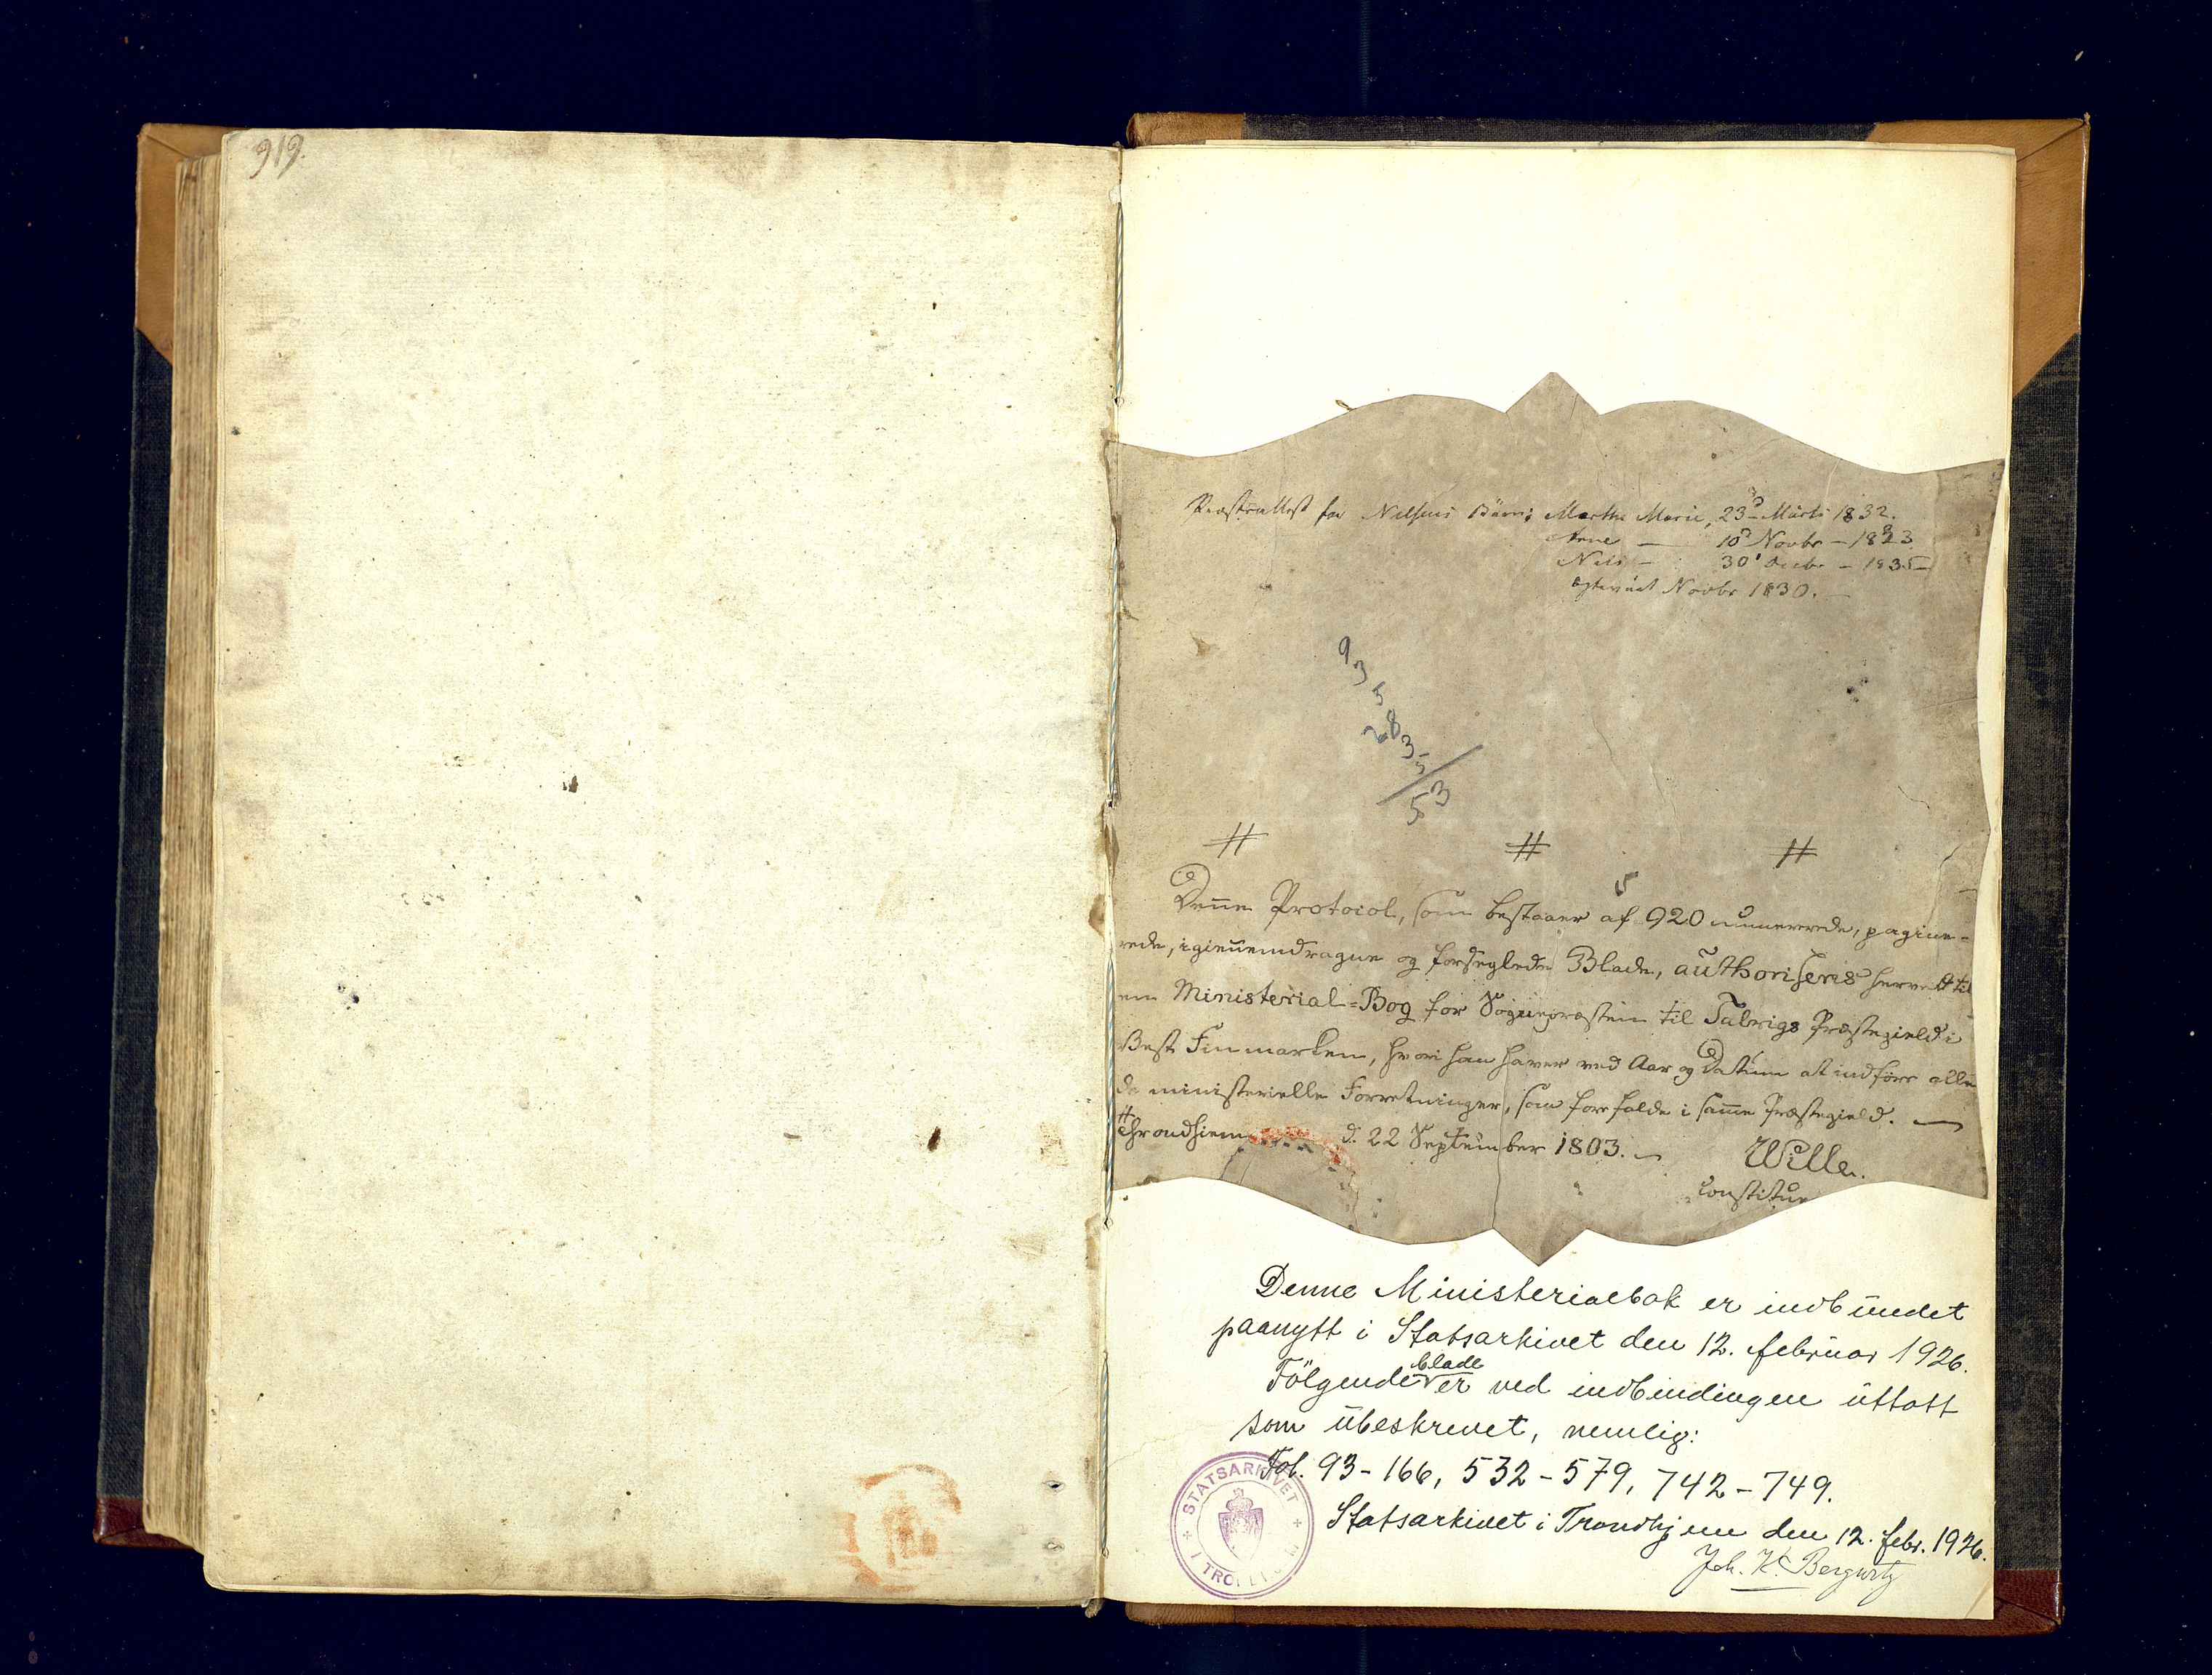 919.
Præsteattest for Nielsens Börn: Marthe Marie, 23d Marts 1832.
Ane — 10d Novbr — 1833
Nils — 30' Decbr — 1835
Egteviet Novbr 1830. —
9
3
5
28
3
5
53
# # #
Denne Protocol, som bestaaer af 920 numererede, pagine-
rede, igiennemdragne og forseglede Blade, authoriseres herved til
en Ministerial-Bog for Sognepræsten til Talvigs Præstegield i
Vest Finmarken, hvori han haver ved Aar og Datum at indføre alle
de ministerielle Forretninger, som forefalde i samme Præstegield. —
Throndhiem d. 22 September 1803. —
Wille.
constitue
Denne Ministerialbok er indbundet
paanytt i Statsarkivet den 12. februar 1926.
blade
Følgende er ved indbindingen uttatt
som ubeskrevet, nemlig:
Fol. 93-166, 532-579, 742-749.
Statsarkivet i Trondhjem den 12. febr. 1926.
Joh. K. Bergwitz
STATSARKIVET
I TRO